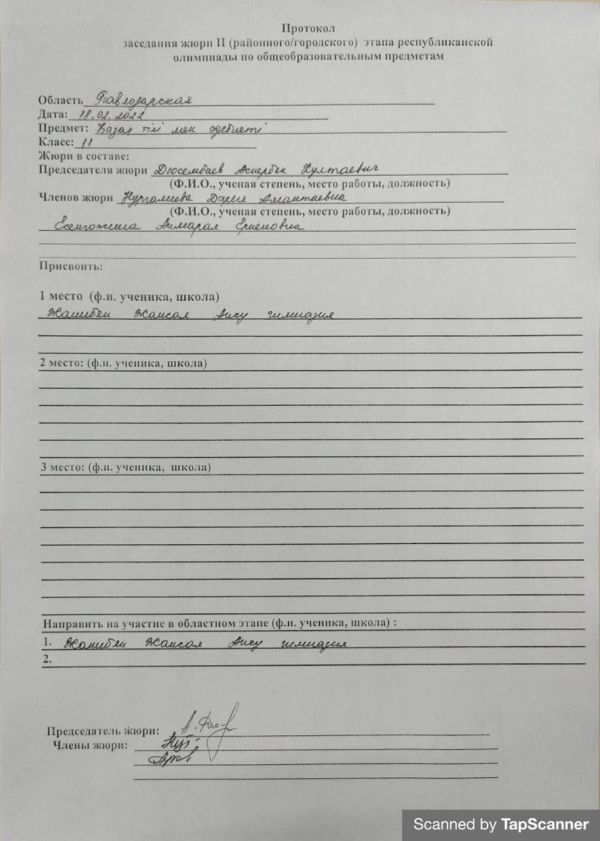 Протокол
заседания жюри II (районного/городского) этапа республиканской
олимпиады по общеобразовательным предметам
Область Павлодарская
Дата: 18.02.2022
Предмет: Қазақ тілі мен әдебиеті
Класс: 11
Жюри в составе:
Председателя жюри Дюсембаев
(Ф.И.О., ученая степень, место работы, должность)
Членов жюри Нургалиева Дария Амантаевна
(Ф.И.О., ученая степень, место работы, должность)
Ермековна
Присвоить:
1 место (ф.и. ученика, школа)
Жәнібек Жансая Ақсу гимназия
2 место: (ф.и. ученика, школа)
3 место: (ф.и. ученика, школа)
Направить на участие в областном этапе (ф.и. ученика, школа) :
1. Жәнібек Жансая Ақсу гимназия
2.
Председатель жюри:
Члены жюри:
Scanned by TapScanner